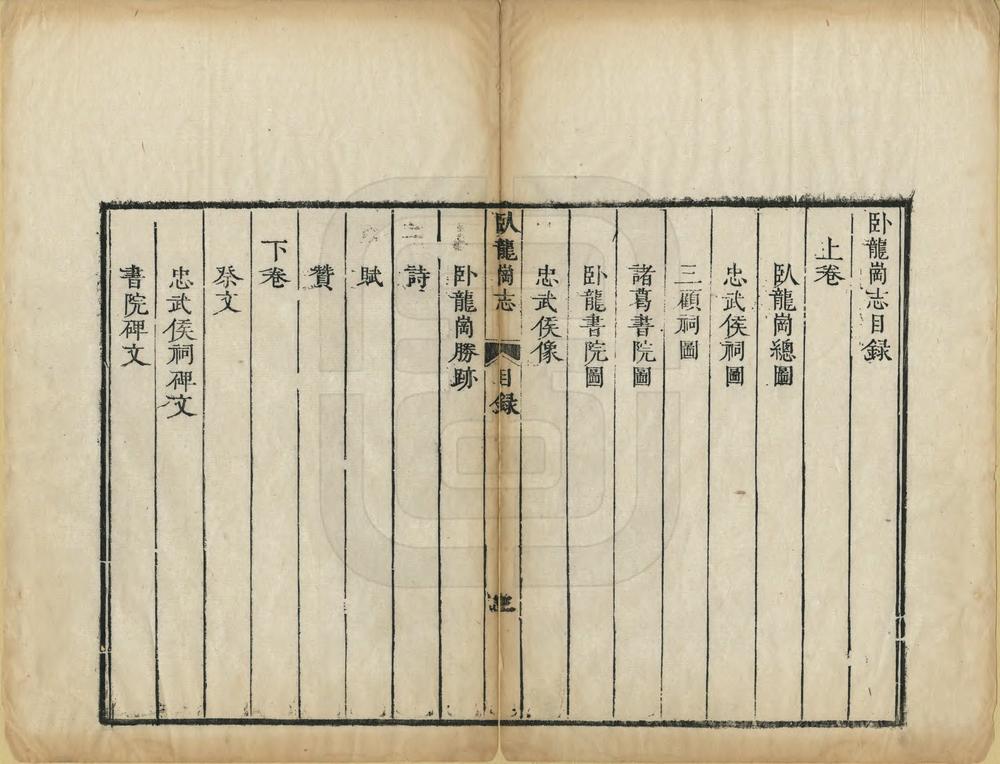 卧龍崗志目録
上卷
臥龍崗總圖
忠武侯祠圖
三顧祠圖
諸葛書院圖
卧龍書院圖
忠武侯像
臥龍崗志 目録
卧龍崗勝跡
詩
賦
贊
下卷
祭文
忠武侯祠碑文
書院碑文